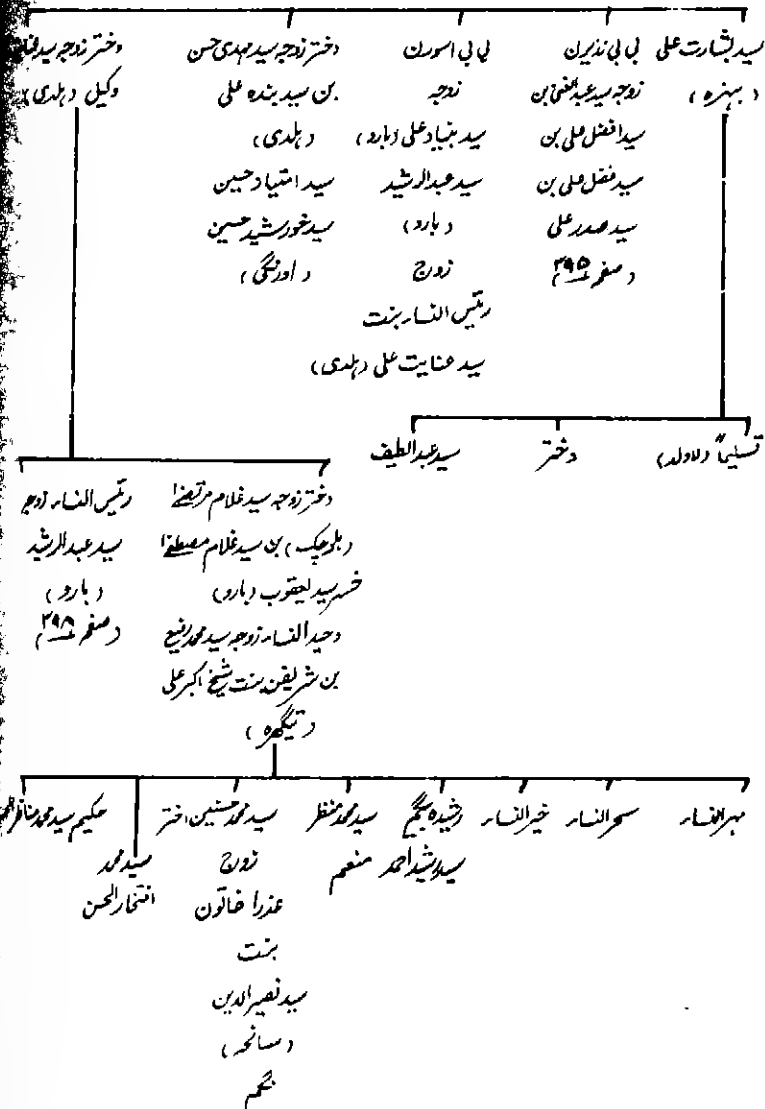 سید بشارت علی
(بہنرہ)
بی بی نذیرن
زوجہ سید عبدالغنی بن
سید افضل علی بن
سید فضل علی بن
سید صدر علی
(صفحہ ۳۹۵)
بی بی اسورن
زوجہ
سید بنیاد علی (بارو)
سید عبدالرشید
(بارو)
زوج
رئیس النساء بنت
سید عنایت علی (بلدی)
دختر زوجہ سید مہدی حسن
بن سید بندہ علی
(بلدی)
سید امتیاد حسین
سید خورشید حسین
(اورنگی)
دختر زوجہ سید
وکیل (بلدی)
تسلیماً (لاولد)
دختر
سید عبداللطیف
دختر زوجہ سید غلام مرتضےٰ
(بلوچک) بن سید غلام مصطفےٰ
خسر سید یعقوب (بارو)
وحید النساء زوجہ سید محمد رفیع
بن شریفن بنت شیخ اکبر علی
(تیگھرہ)
رئیس النساء زوجہ
سید عبدالرشید
(بارو)
(صفحہ ۳۹۸)
مہر النساء
سحر النساء
خیر النساء
رشیدہ بیگم
سید رشید احمد
سید محمد منظر
منعم
سید محمد حسنین اختر
زوج
عذرا خاتون
بنت
سید نصیر الدین
(سانحہ)
نگم
سید محمد
افتخار الحسن
حکیم سید محمد مناظر